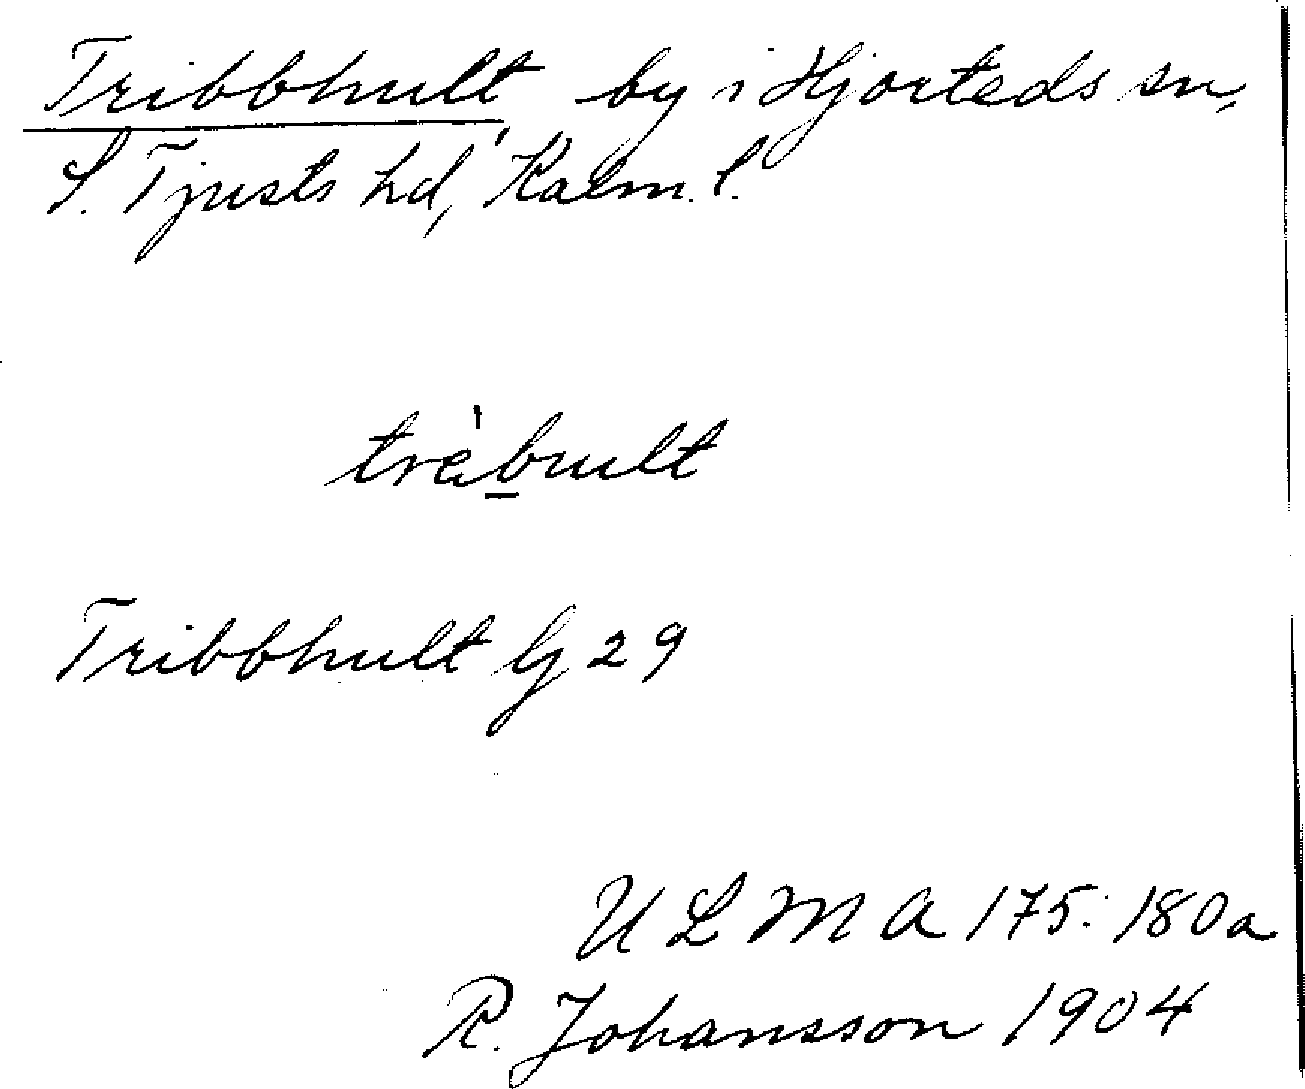 Tribbhult by i Hjorteds sn,
S. Tjusts hd, Kalm. l.
trèbult
Tribbhult Gj 29
ULMA 175:180a
R. Johansson 1904